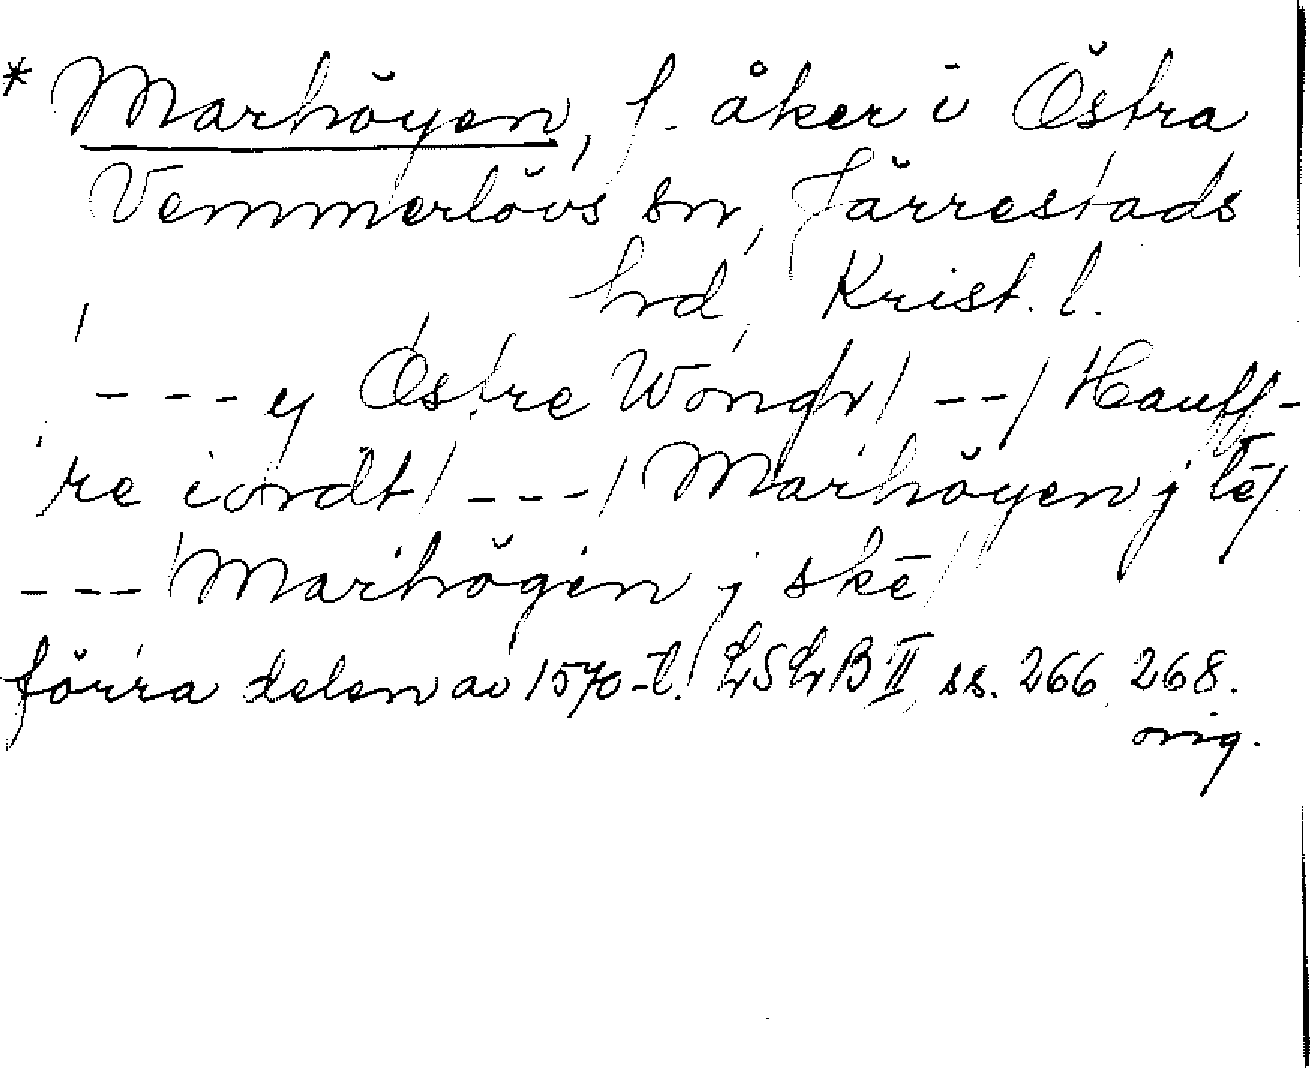 * Marhöyen, f. åker i Östra
Vemmerlövs sn, Järrestads
hd, Krist. l.
--- ij Østre Wongh/ --/ Hauff-
re iordt/ ---/ Marhöyen j tē/
--- Marhögin j skē/
förra delen av 1570-t. LSLB II, ss. 266, 268.
orig.